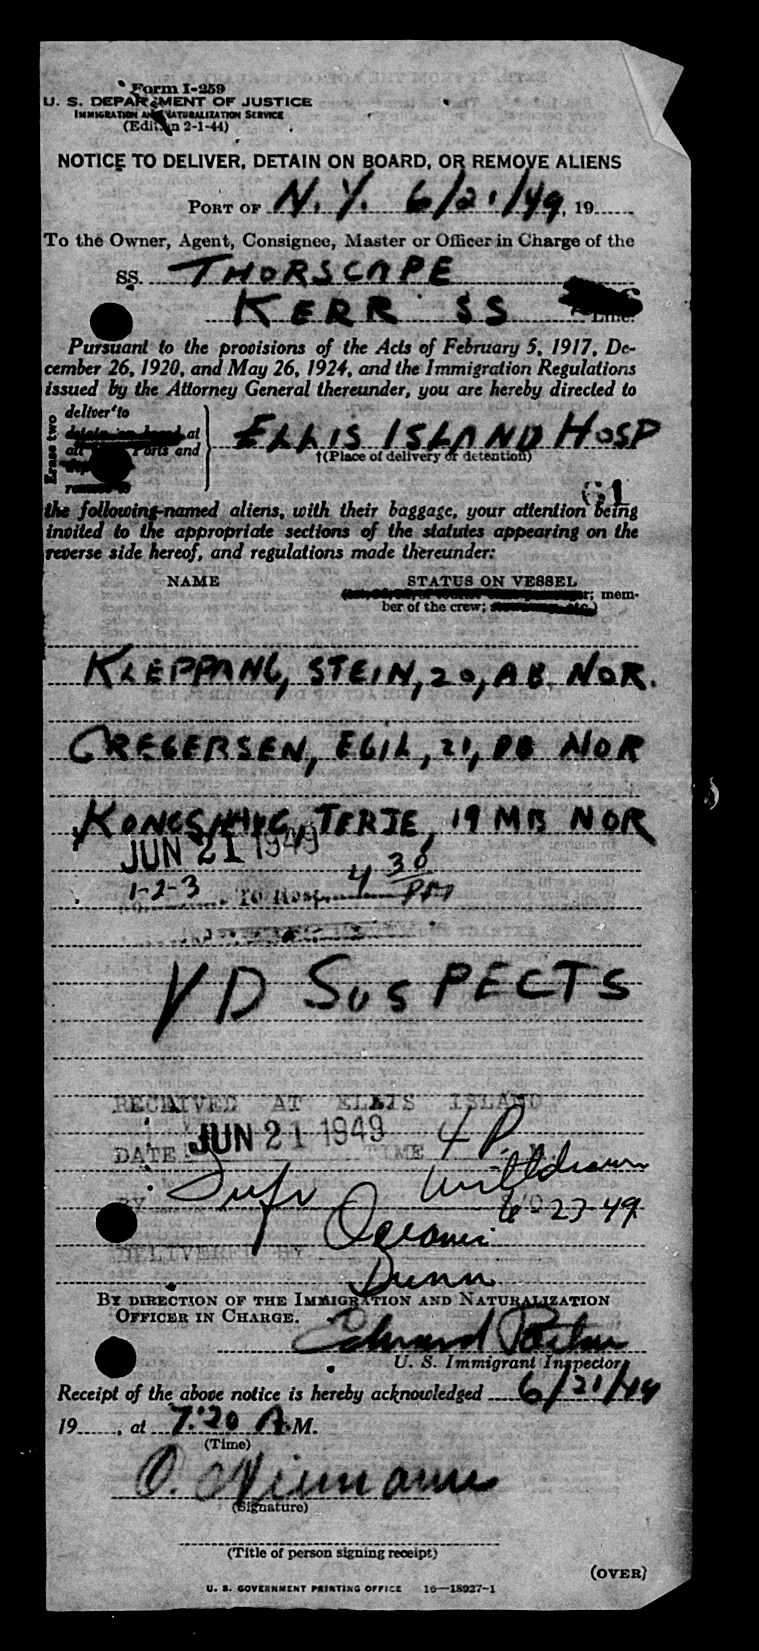 Form I-259
U. S. DEPARTMENT OF JUSTICE
IMMIGRATION AND NATURALIZATION SERVICE
(Edition 2-1-44)
NOTICE TO DELIVER, DETAIN ON BOARD, OR REMOVE ALIENS
PORT OF N.Y. 6/21/49, 19
To the Owner, Agent, Consignee, Master or Officer in Charge of the
SS. THORSCAPE
KERR SS Line.
Pursuant to the provisions of the Acts of February 5, 1917, De-
cember 26, 1920, and May 26, 1924, and the Immigration Regulations
issued by the Attorney General thereunder, you are hereby directed to
Erase two
deliver to
detain on board at
all Ports and
remove to
ELLIS ISLAND HOSP
†(Place of delivery or detention)
61
the following-named aliens, with their baggage, your attention being
invited to the appropriate sections of the statutes appearing on the
reverse side hereof, and regulations made thereunder:
NAME STATUS ON VESSEL
mem-
ber of the crew;
KLEPPANG, STEIN, 20, AB NOR.
GREGERSEN, EGIL, 21, NOR
TERJE, 19 MB NOR
JUN 21 1949
1-2-3 To Hosp. 4 30 PM
VD SUSPECTS
RECEIVED AT ELLIS ISLAND
DATE JUN 21 1949 TIME 4 P. M.
BY Withdrawn
6-23-49
DELIVERED BY
Dunn
BY DIRECTION OF THE IMMIGRATION AND NATURALIZATION
OFFICER IN CHARGE.
Edward
U. S. Immigrant Inspector
Receipt of the above notice is hereby acknowledged 6/21/49
19, at 7:20 A.M.
(Time)
O. Niemann
(Signature)
(Title of person signing receipt)
(OVER)
U. S. GOVERNMENT PRINTING OFFICE 16—18927-1